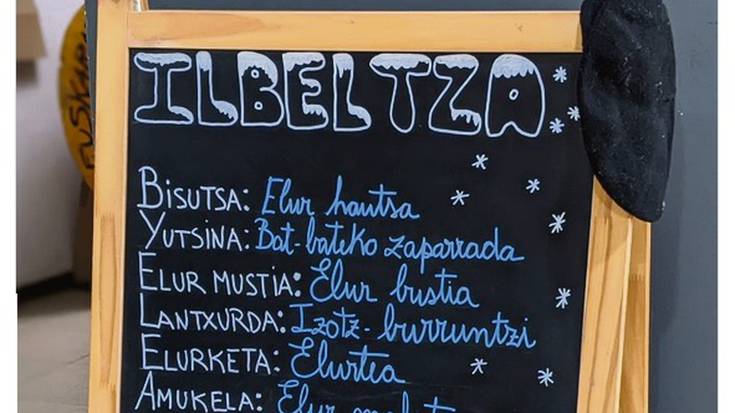 ILBELTZA
BISUTSA: Elur hautsa
YUTSINA: Bat-bateko zaparrada
ELUR MUSTIA: Elur bustia
LANTXURDA: Izotz-burruntzi
ELURKETA: Elurtea
AMUKELA: Elur